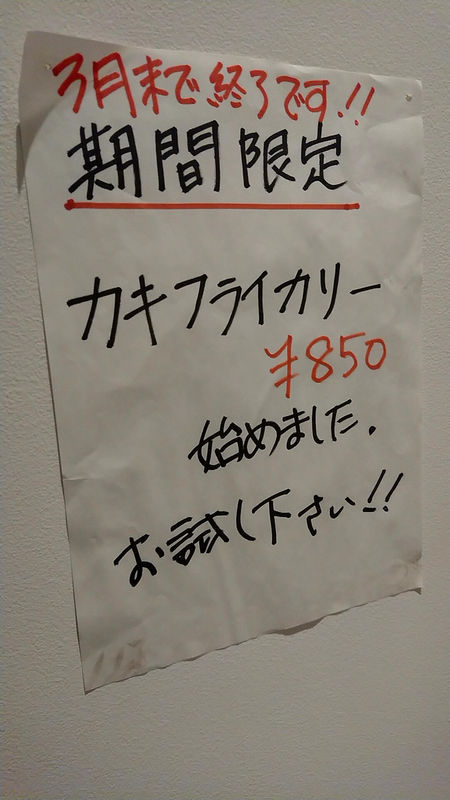 3月末で終了です!!
期間限定
カキフライカリー
¥850
始めました.
お試し下さい!!